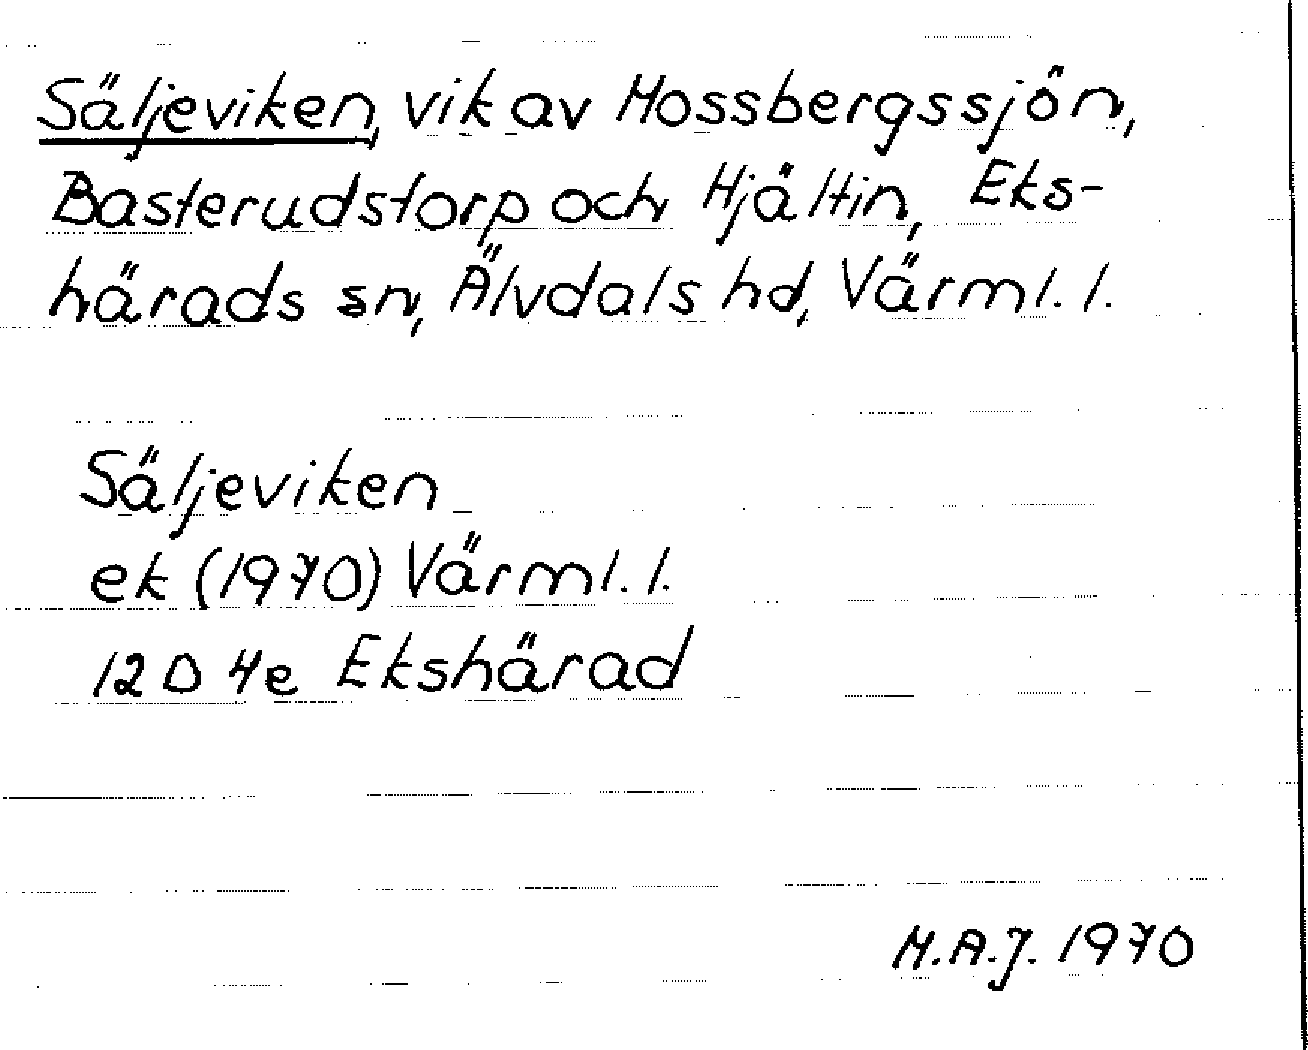 Säljeviken, vik av Mossbergssjön,
Basterudstorp och Hjältin, Eks-
härads sn, Älvdals hd, Värml. l.
Säljeviken
ek (1970) Värml. l.
12 D 4e Ekshärad
M.A.J. 1970